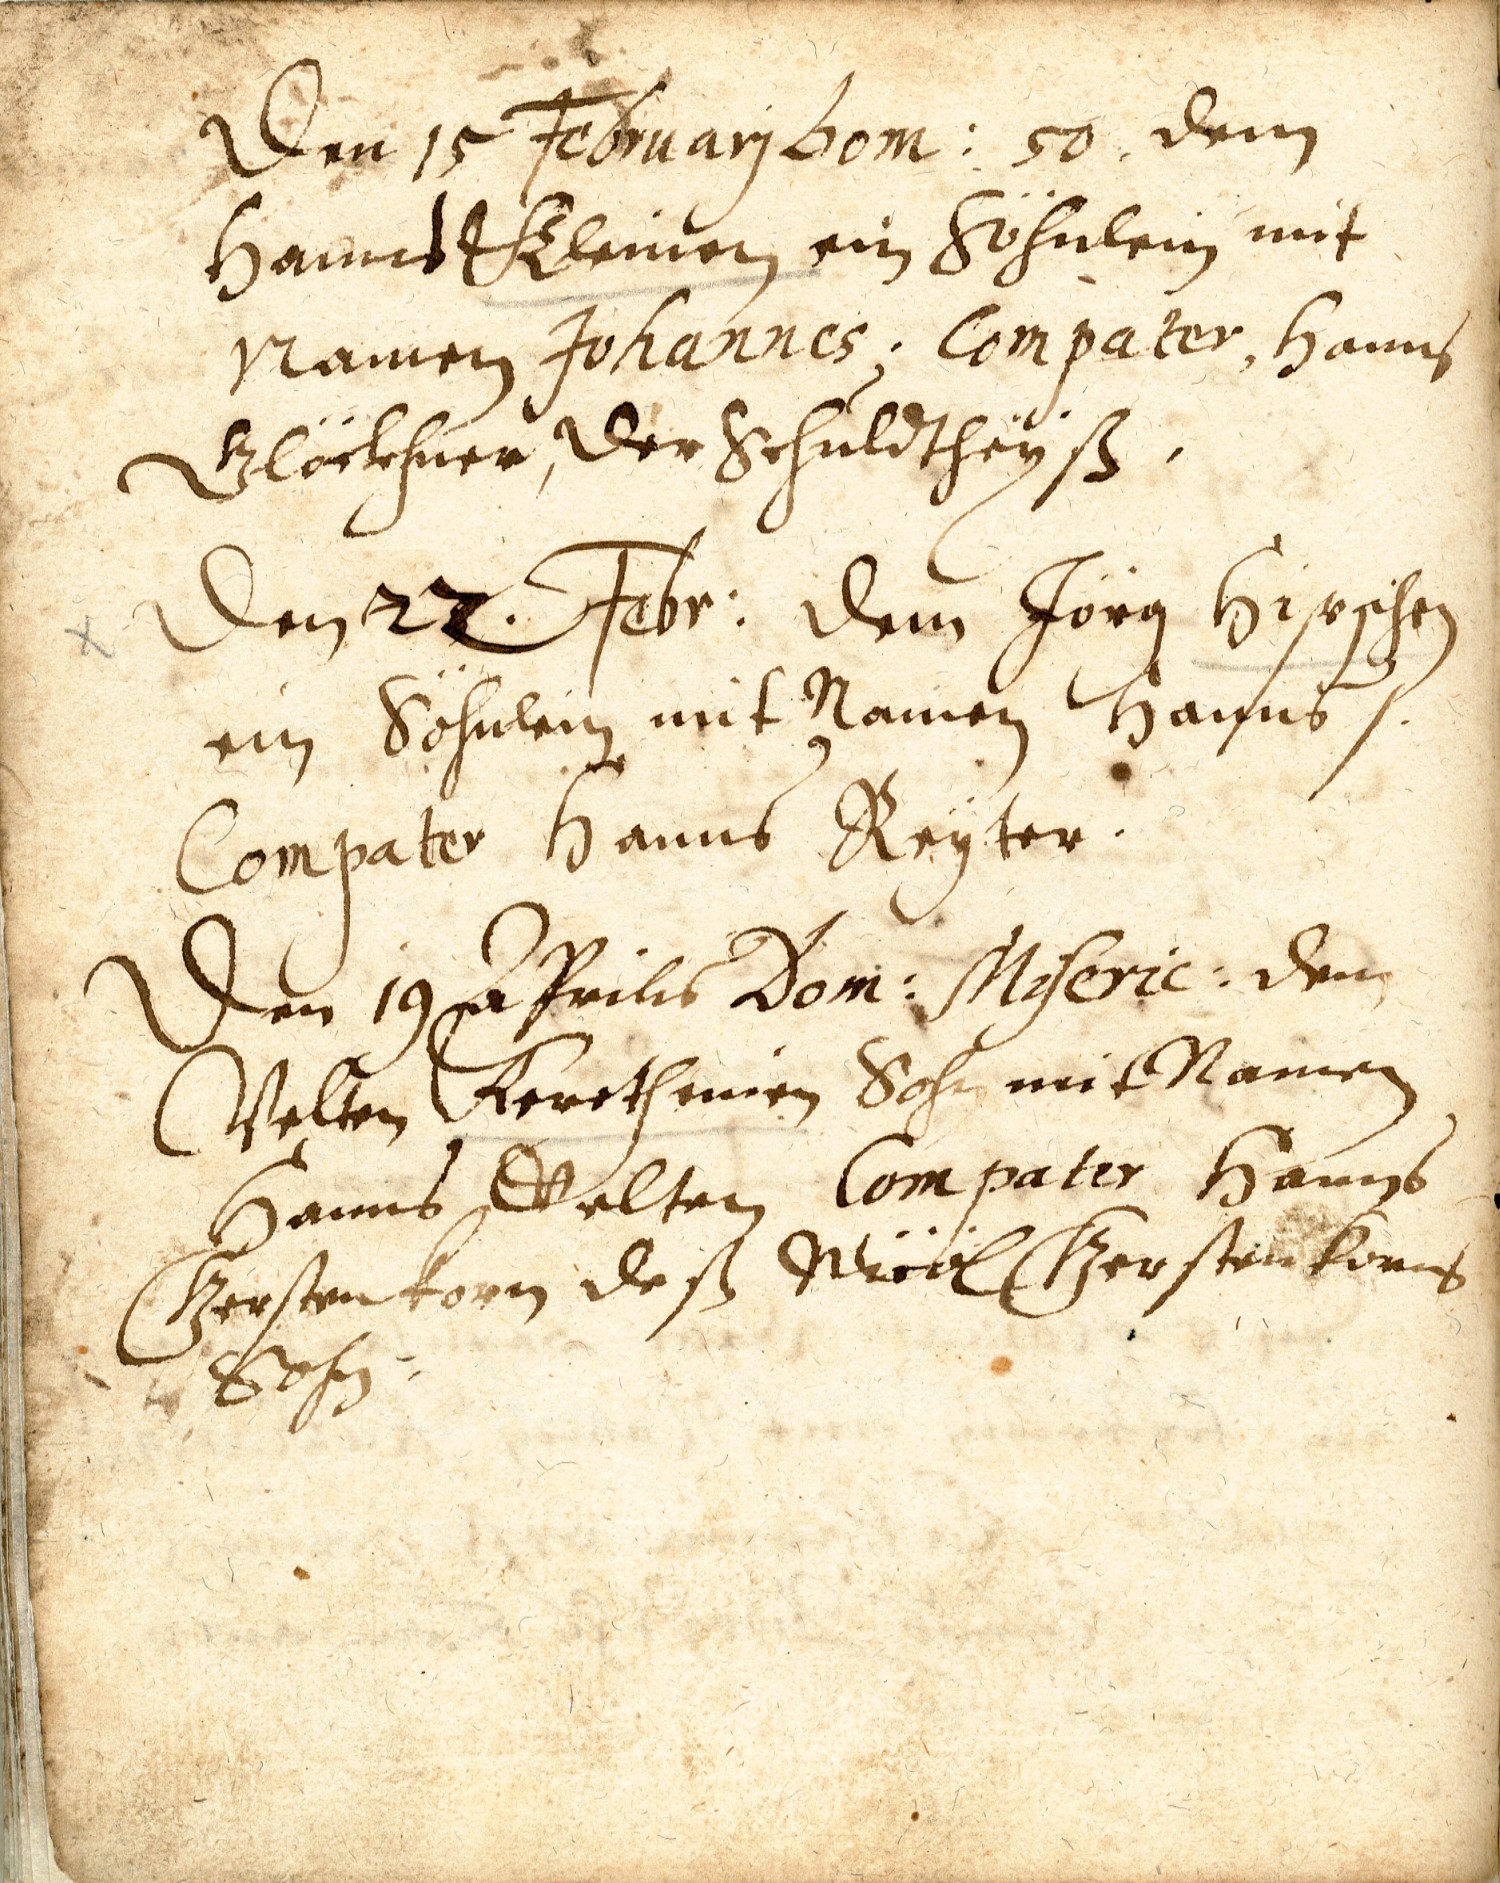 Den 15 Februarj Dom: 50. dem
Hanns Kleinen ein Söhnlein mit
Namen Johannes; Compater, Hanns
Glöckhner, der Schuldtheÿß.
Den 22. Febr: dem Jörg Hirschen
ein Söhnlein mit Namen Hanns
Compater Hanns Reÿter.
Den 19 Aprilis Dom: Miseric: dem
Velten Sohn mit Namen
Hanns Velten Compater Hanns
Gerstenkorn deß Gerstenkorns
Sohn.